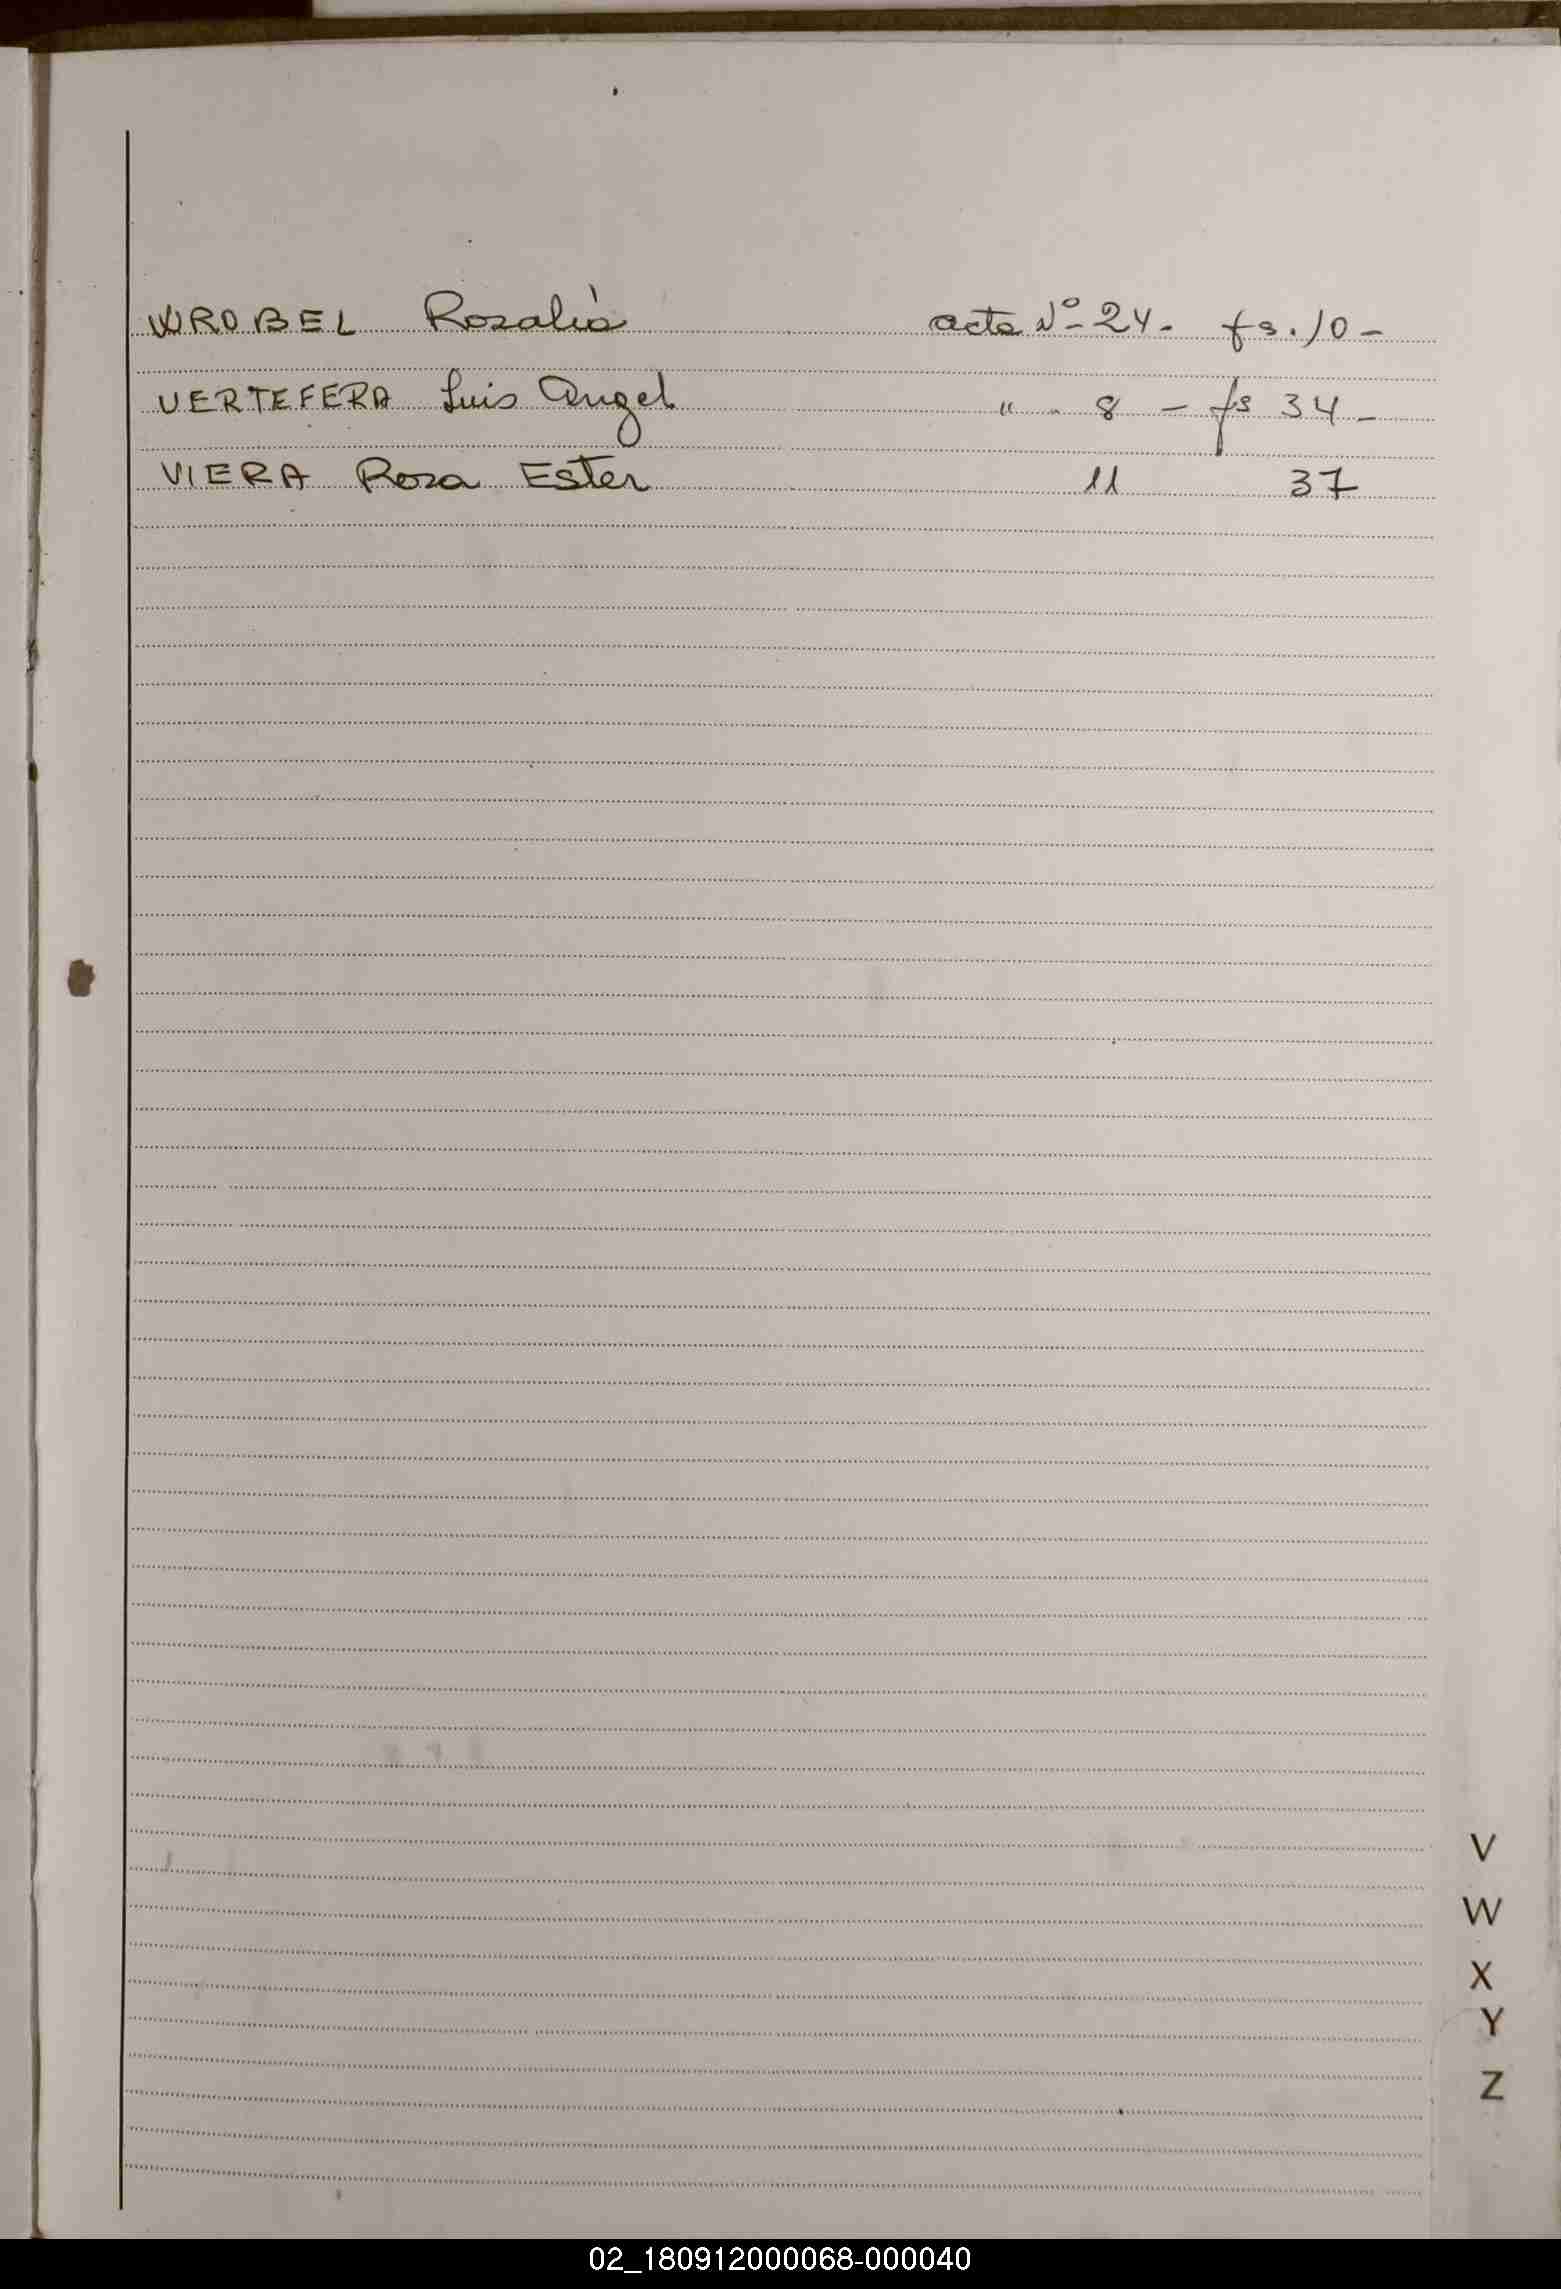 WROBEL Rosalía acta Nº 24. fs. 10 -
VERTEFERA Luis Angel " . 8 - fs 34 -
VIERA Rosa Ester 11 37
V
W
X
Y
Z
02_180912000068-000040